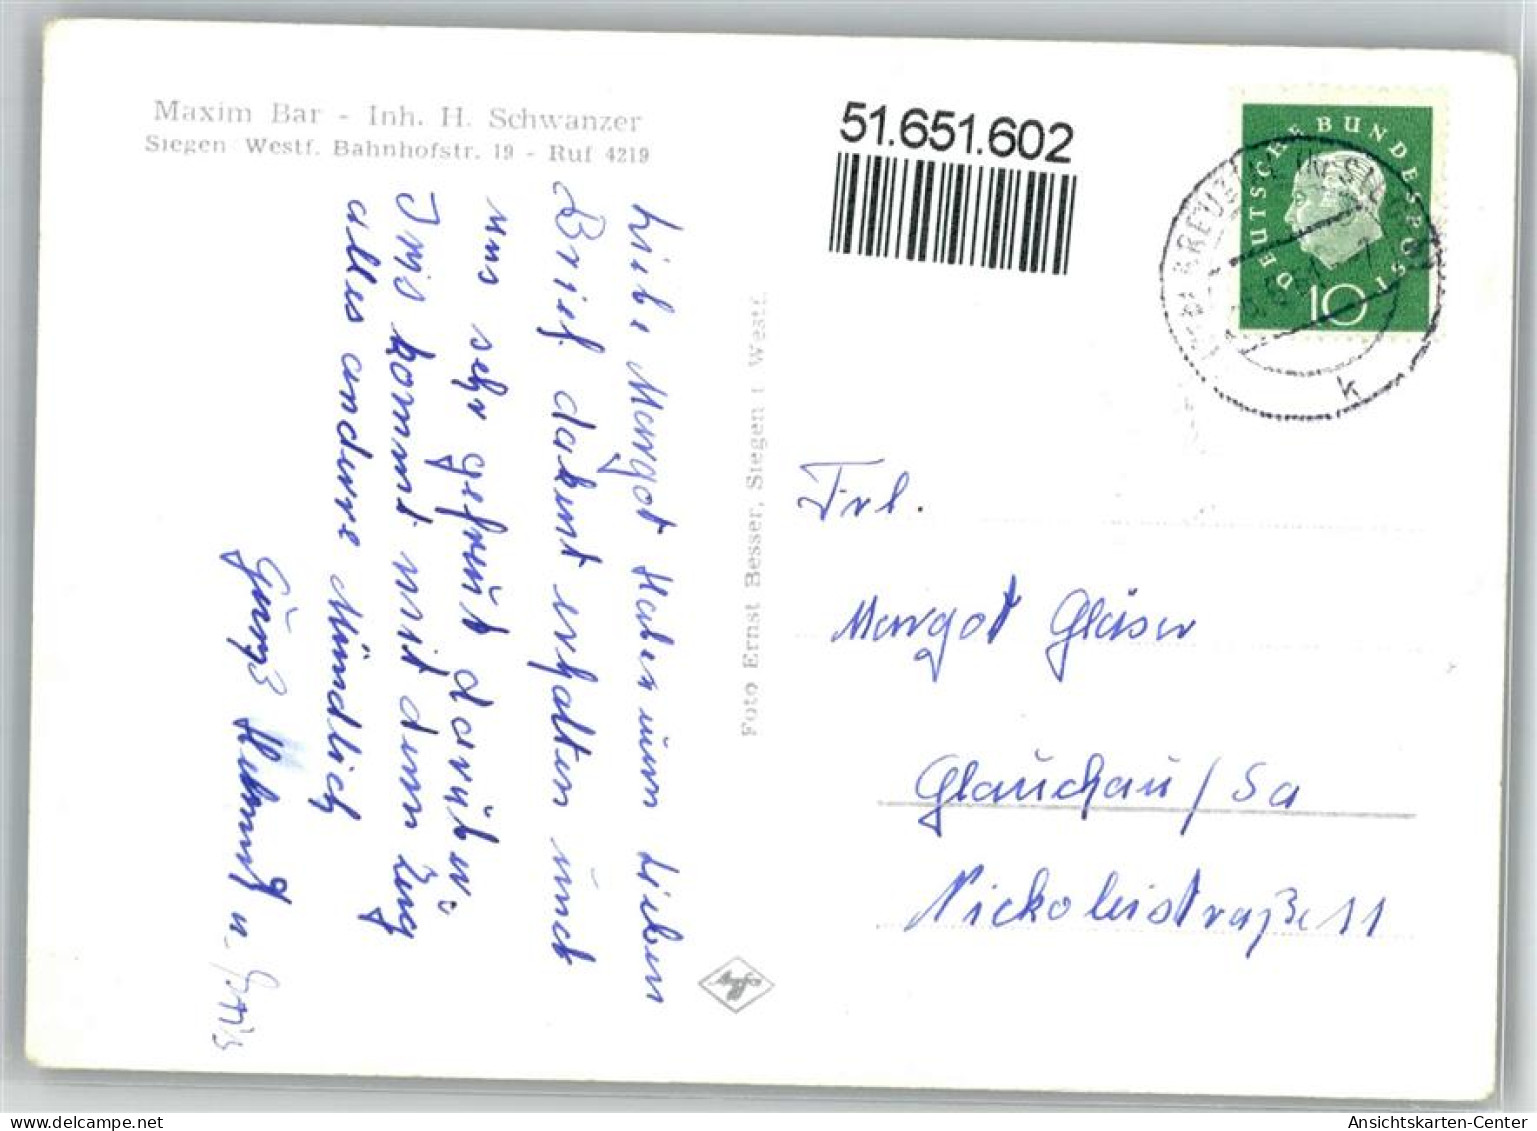 Maxim Bar - Inh. H. Schwanzer
Siegen Westf. Bahnhofstr. 19 - Ruf 4219
51.651.602
DEUTSCHE BUNDESPOST
10
k
Liebe Margot Haben eurn Lieben
Brief dakent erhalten und
uns sehr gefreut darüber.
Iris kommt mit dem Zug
alles andere Mündlich
Helmut u. Iris
Foto Ernst Besser, Siegen i. Westf.
Frl.
Margot Gläser
Glauchau / Sa
Nickoleistraße 11
Ansichtskarten-Center